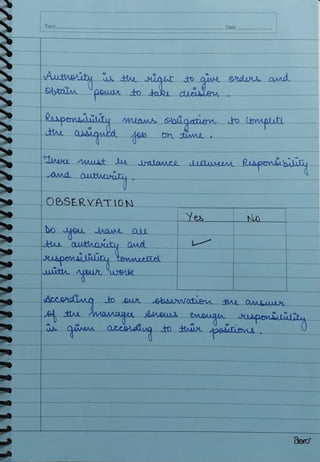 Topic
Date
Authority is the right to give orders and
obtain power to take decision.
Responsibility means obligation to complete
the assigned job on time.
There must be balance between Responsibility
and authority.
OBSERVATION
Yes No
Do you have all
the authority and ✓
responsibility connected
with your work
According to our observation the answer
of the manager shows enough responsibility
is given according to their positions.
aero